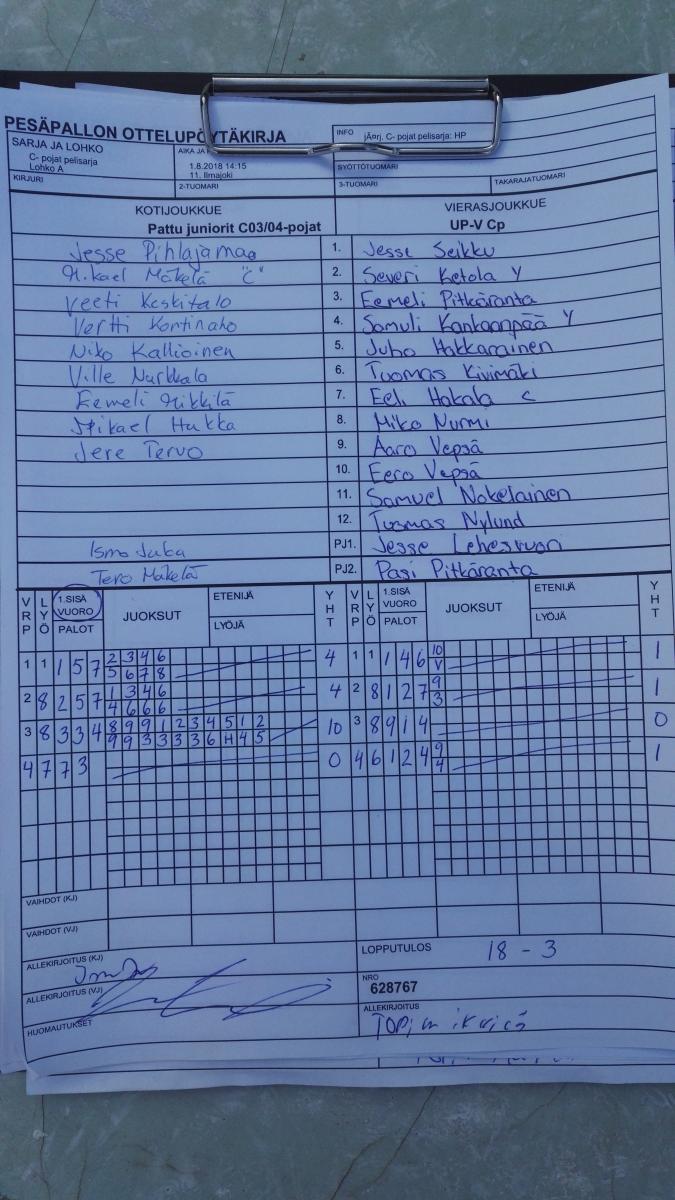 PESÄPALLON OTTELUPÖYTÄKIRJA
INFO jÃ¤rj. C- pojat pelisarja: HP
SARJA JA LOHKO
C- pojat pelisarja
Lohko A
AIKA JA
1.8.2018 14:15
11. Ilmajoki
SYÖTTÖTUOMARI
KIRJURI 2-TUOMARI 3-TUOMARI TAKARAJATUOMARI
KOTIJOUKKUE VIERASJOUKKUE
Pattu juniorit C03/04-pojat UP-V Cp
Jesse Pihlajamaa 1. Jesse Seikku
Mikael Mäkelä "C" 2. Severi Ketola Y
Veeti Keskitalo 3. Eemeli Pitkäranta
Vertti Kortinaho 4. Samuli Kankaanpää Y
Niko Kallioinen 5. Juho Hakkarainen
Ville Nurkkala 6. Tuomas Kivimäki
Eemeli Mikkilä 7. Eeli Hakala C
Mikael Hukka 8. Miko Nurmi
Jere Tervo 9. Aaro Vepsä
10. Eero Vepsä
11. Samuel Nokelainen
12. Tuomas Nylund
Ismo Juka PJ1. Jesse Lehesvuori
Tero Mäkelä PJ2. Pasi Pitkäranta
VRP LYÖ 1.SISÄ VUORO PALOT JUOKSUT ETENIJÄ LYÖJÄ YHT VRP LYÖ 1.SISÄ VUORO PALOT JUOKSUT ETENIJÄ LYÖJÄ YHT
1 1 1 5 7 2 3 4 6 4 1 1 1 4 6 10 1
5 6 7 8 V
2 8 2 5 7 1 3 4 6 4 2 8 1 2 7 9 1
4 6 6 6 3
3 8 3 3 4 8 9 9 1 2 3 4 5 1 2 10 3 8 9 1 4 0
9 9 3 3 3 3 6 H 4 5
4 7 7 3 0 4 6 1 2 4 9 1
4
VAIHDOT (KJ)
VAIHDOT (VJ)
ALLEKIRJOITUS (KJ) LOPPUTULOS 18 - 3
ALLEKIRJOITUS (VJ) NRO
628767
HUOMAUTUKSET ALLEKIRJOITUS